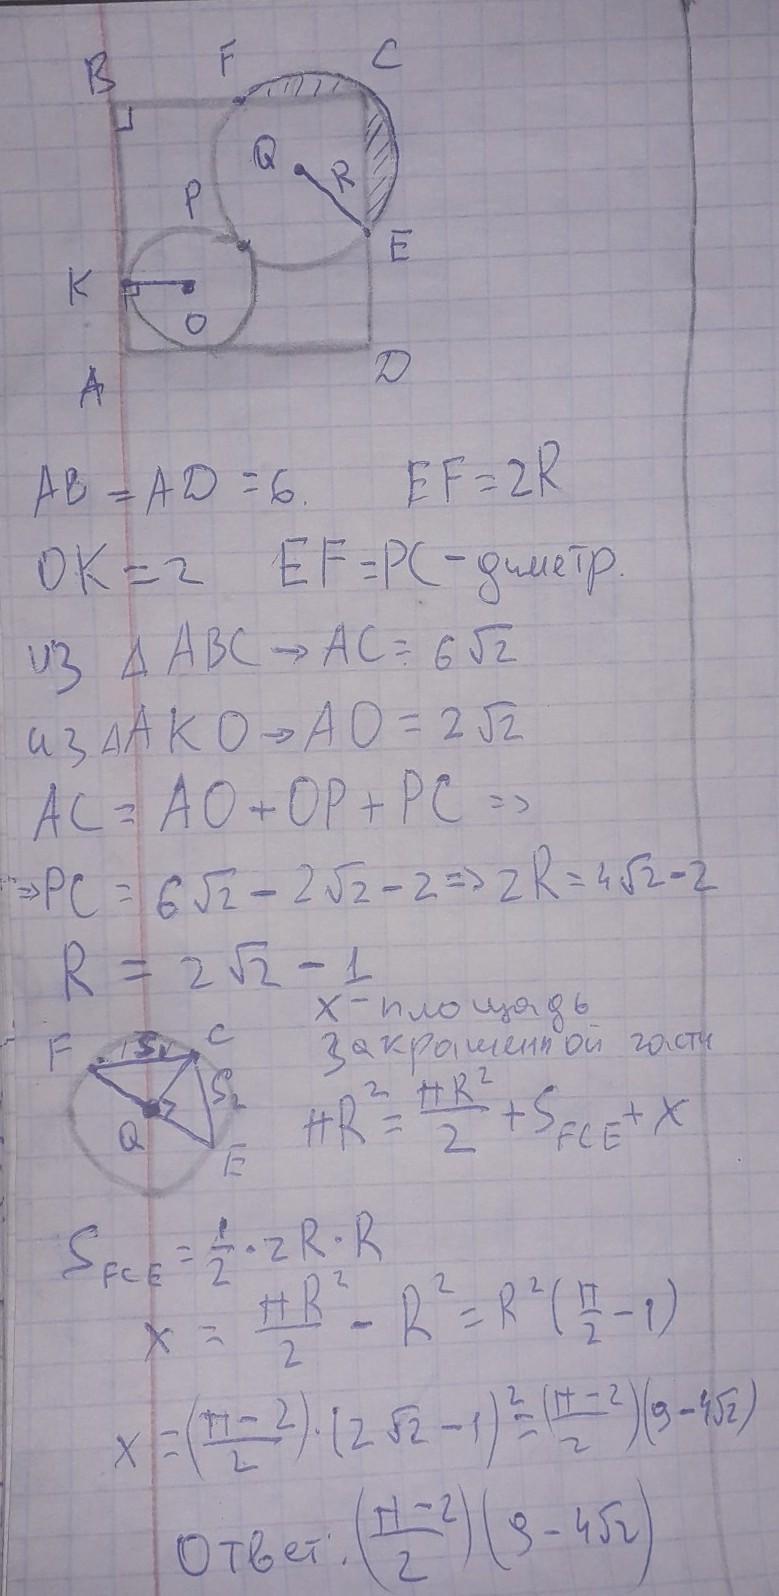 B F C
Q R
P
E
K
O
A D
AB = AD = 6. EF = 2R
OK = 2 EF = PC - диметр.
из △ ABC → AC = 6√2
из △AKO → AO = 2√2
AC = AO + OP + PC =>
=> PC = 6√2 - 2√2 - 2 => 2R = 4√2 - 2
R = 2√2 - 1
x - площадь
закрашенной части
F S₁ C
S₂
Q
E
πR² = πR²/2 + S_FCE + x
S_FCE = 1/2 · 2R · R
x = πR²/2 - R² = R² (π/2 - 1)
x = (π-2/2) · (2√2 - 1)² = (π-2/2)(9 - 4√2)
Ответ: (π-2/2)(9 - 4√2)